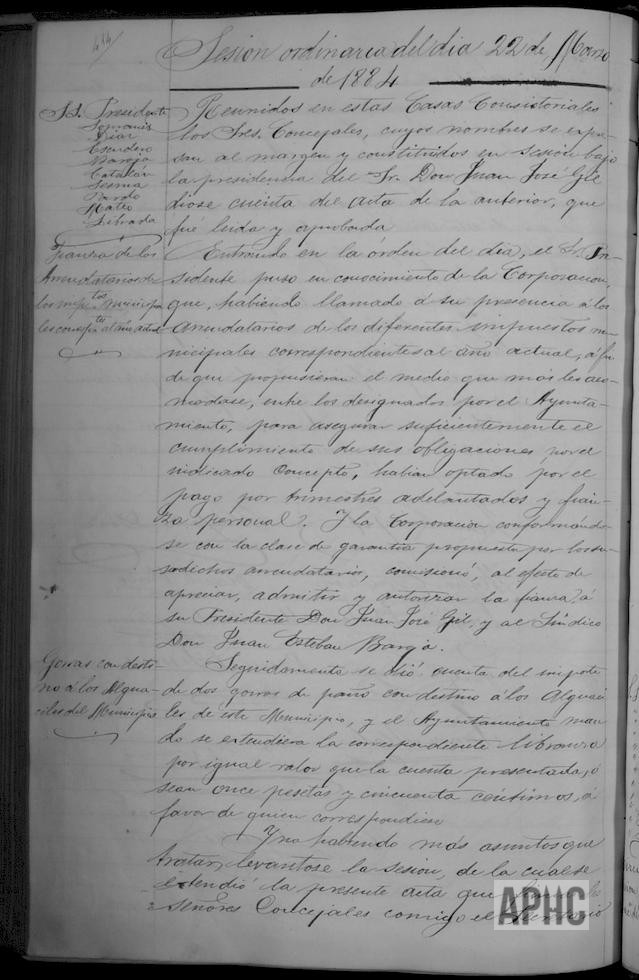 Sesion ordinaria del dia 22 de Marzo
de 1884
SS. Presidente
Escudero
Baroja
Catalán
Sesma
Pardo
Mateo
Librada
Reunidos en estas Casas Consistoriales
los Sres. Concejales, cuyos nombres se expre-
san al margen y constituidos en sesión bajo
la presidencia del Sr. Don Juan José Gil
diose cuenta del acta de la anterior, que
fué leida y aprobada
Fianza de los
Arrendatarios de
los imptos municipa-
les corresptes al año actual
Entrando en la órden del dia, el Sr. Pre-
sidente puso en conocimiento de la Corporacion,
que, habiendo llamado á su presencia á los
arrendatarios de los diferentes impuestos mu-
nicipales correspondientes al año actual, á fin
de que propusieran el medio que mas les aco-
modase, entre los designados por el Ayunta-
miento, para asegurar suficientemente el
cumplimiento de sus obligaciones por el
indicado concepto, habian optado por el
pago por trimestres adelantados y fian-
za personal. Y la Corporacion conformando-
se con la clase de garantia propuesta por los su-
sodichos arrendatarios, comisionó, al efecto de
apreciar, admitir y autorizar la fianza, á
su Presidente Don Juan José Gil, y al Síndico
Don Juan Esteban Baroja.
Gorras con desti-
no á los Algua-
ciles del Municipio
Seguidamente se dió cuenta del importe
de dos gorras de paño con destino á los Alguaci-
les de este Municipio, y el Ayuntamiento man-
do se extendiera la correspondiente libranza
por igual valor que la cuenta presentada, ó
sean once pesetas y cincuenta céntimos, á
favor de quien correspondiese
Y no habiendo más asuntos que
tratar, levantose la sesion, de la cual se
extendió la presente acta que
señores Concejales conmigo el Secretario
APHC